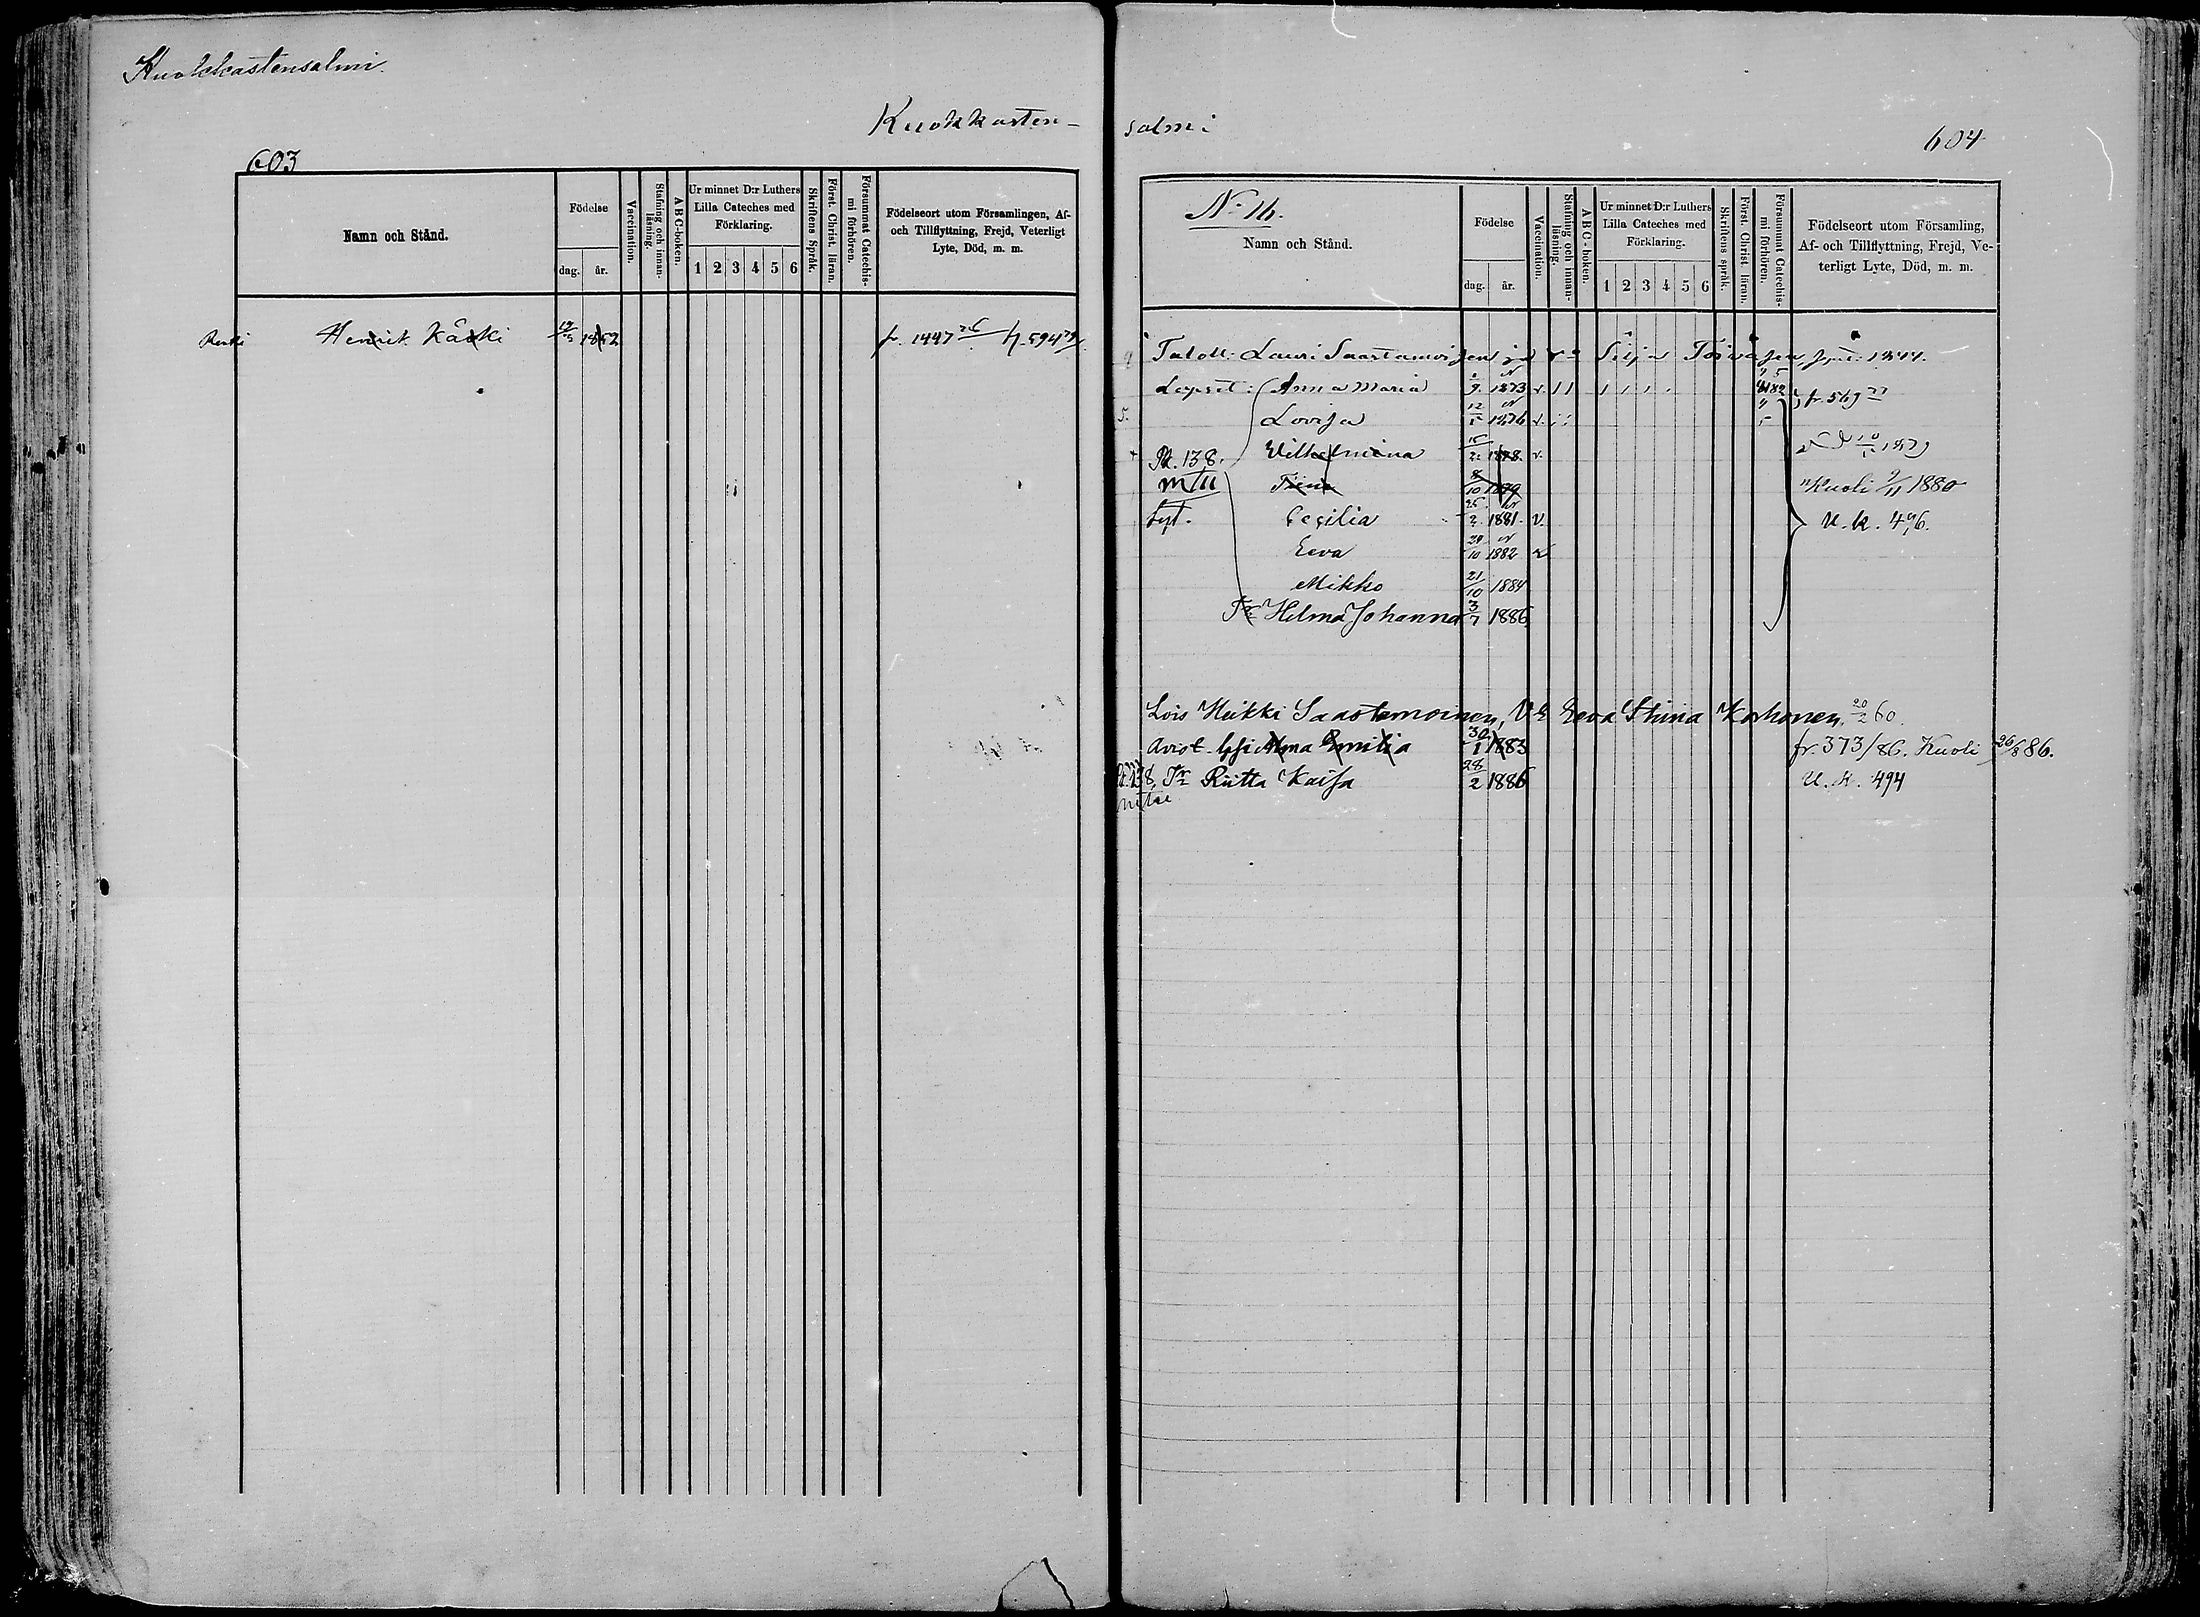 Kuokkastensalmi.
Kuokkasten-
603
Namn och Stånd.
Födelse
dag. år.
Vaccination.
Stafning och innan-läsning.
ABC-boken.
Ur minnet D:r Luthers Lilla Cateches med Förklaring.
1 2 3 4 5 6
Skriftens Språk.
Först. Christ. läran.
Försummat Catechis-mi förhören.
Födelseort utom Församlingen, Af- och Tillflyttning, Frejd, Veterligt Lyte, Död, m. m.
Henrik Käski 1852 fr. 1447 594
salmi
604
No 16.
Namn och Stånd.
Födelse
dag. år.
Vaccination.
Stafning och innan-läsning.
ABC-boken.
Ur minnet D:r Luthers Lilla Cateches med Förklaring.
1 2 3 4 5 6
Skriftens språk.
Först. Christ. läran.
Försummat Catechis-mi förhören.
Födelseort utom Församling, Af- och Tillflyttning, Frejd, Veterligt Lyte, Död, m. m.
Lauri Saastamoisen ja Silja 1844.
Lapset: Anna Maria 9 1873 fr. 569
Lovisa 12/5 1876
138. Vilhelmina 1878 v.
Tiina 8/10 1879 Kuoli 9/11 1880
Cecilia 2 1881 v. U. k. 496.
Eeva 10 1882
Mikko 21/10 1884
Tr Hilma Johanna 3/7 1886
Lois Heikki Saastamoinen, Eeva Stiina Korhonen 20/2 60.
Aviot. Alma Emilia 30/1 1883 fr. 373/86. Kuoli 26/8 86.
Tr Riitta Kaisa 28/2 1886 U. K. 494